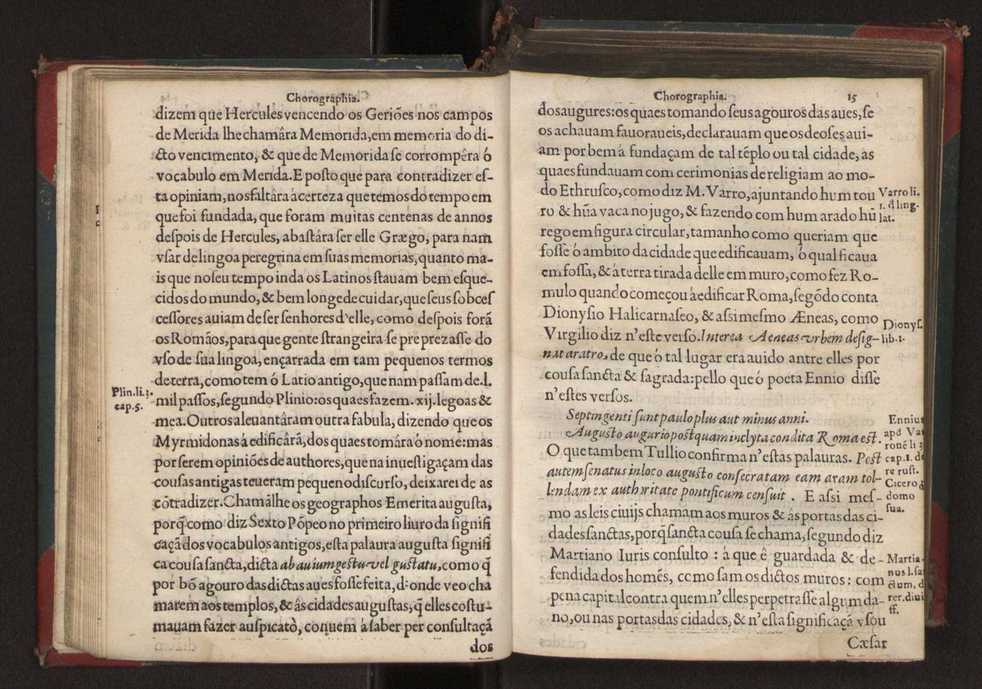 Chorographia.
dizem que Hercules vencendo os Geriões nos campos
de Merida lhe chamâra Memorida, em memoria do di-
cto vencimento, & que de Memorida se corrompêra ó
vocabulo em Merida. E posto que para contradizer es-
ta opiniam, nos faltâra á certeza que temos do tempo em
que foi fundada, que foram muitas centenas de annos
despois de Hercules, abastâra ser elle Græego, para nam
vsar de lingoa peregrina em suas memorias, quanto ma-
is que no seu tempo inda os Latinos stauam bem esque-
cidos do mundo, & bem longe de cuidar, que seus sobces
cessores auiam de ser senhores d'elle, como despois forã
os Romãos, para que gente strangeira se preprezasse do
vso de sua lingoa, ençarrada em tam pequenos termos
de terra, como tem ó Latio antigo, que nam passam de.l.
mil passos, segundo Plinio: os quaes fazem. xij. legoas &
mea. Outros aleuantâram outra fabula, dizendo que os
Myrmidonas á edificârã, dos quaes tomára ó nome: mas
por serem opiniões de authores, que na inuestigaçam das
cousas antigas teueram pequeno discurso, deixarei de as
cõtradizer. Chamãlhe os geographos Emerita augusta,
porq̃ como diz Sexto Põpeo no primeiro liuro da signifi
caçã dos vocabulos antigos, esta palaura augusta signifi
ca cousa sancta, dicta ab auium gestu vel gustatu, como q̃
por bõ agouro das dictas aues fosse feita, d'onde veo cha
marem aos templos, & ás cidades augustas, q̃ elles costu-
mauam fazer auspicatò, conuem á saber per consultaçã
dos
Plin. li. 3.
cap. 5.
Chorographia. 15
dos augures: os quaes tomando seus agouros das aues, se
os achauam fauoraueis, declarauam que os deoses aui-
am por bem á fundaçam de tal tẽplo ou tal cidade, as
quaes fundauam com cerimonias de religiam ao mo-
do Ethrusco, como diz M. Varro, ajuntando hum tou
ro & hũa vaca no jugo, & fazendo com hum arado hũ
rego em figura circular, tamanho como queriam que
fosse ó ambito da cidade que edificauam, ó qual ficaua
em fossa, & á terra tirada delle em muro, como fez Ro-
mulo quando começou á edificar Roma, segõdo conta
Dionysio Halicarnaseo, & assi mesmo Æneas, como
Virgilio diz n'este verso. Interea Aeneas vrbem desig-
nat aratro, de que ó tal lugar era auido antre elles por
cousa sancta & sagrada: pello que ó poeta Ennio disse
n'estes versos.
Septingenti sunt paulo plus aut minus anni.
Augusto augurio postquam inclyta condita Roma est.
O que tambem Tullio confirma n'estas palauras. Post
autem senatus in loco augusto consecratam eam aram tol-
lendam ex authoritate pontificum censuit. E assi mes-
mo as leis ciuijs chamam aos muros & ás portas das ci-
dades sanctas, porq̃ sancta cousa se chama, segundo diz
Martiano Iuris consulto: á que ê guardada & de-
fendida dos homẽs, como sam os dictos muros: com
pena capital contra quem n'elles perpetrasse algum da-
no, ou nas portas das cidades, & n'esta significaçã vsou
Cæsar
Varro li.
1. d̃ ling.
lat.
Dionys.
lib. 1.
Ennius
apd Var
ronẽ li 3
cap. 1. de
re rust.
Cicero d̃
domo
sua.
Martia
nus l. sa
ctum. d
rer. diui
ff.